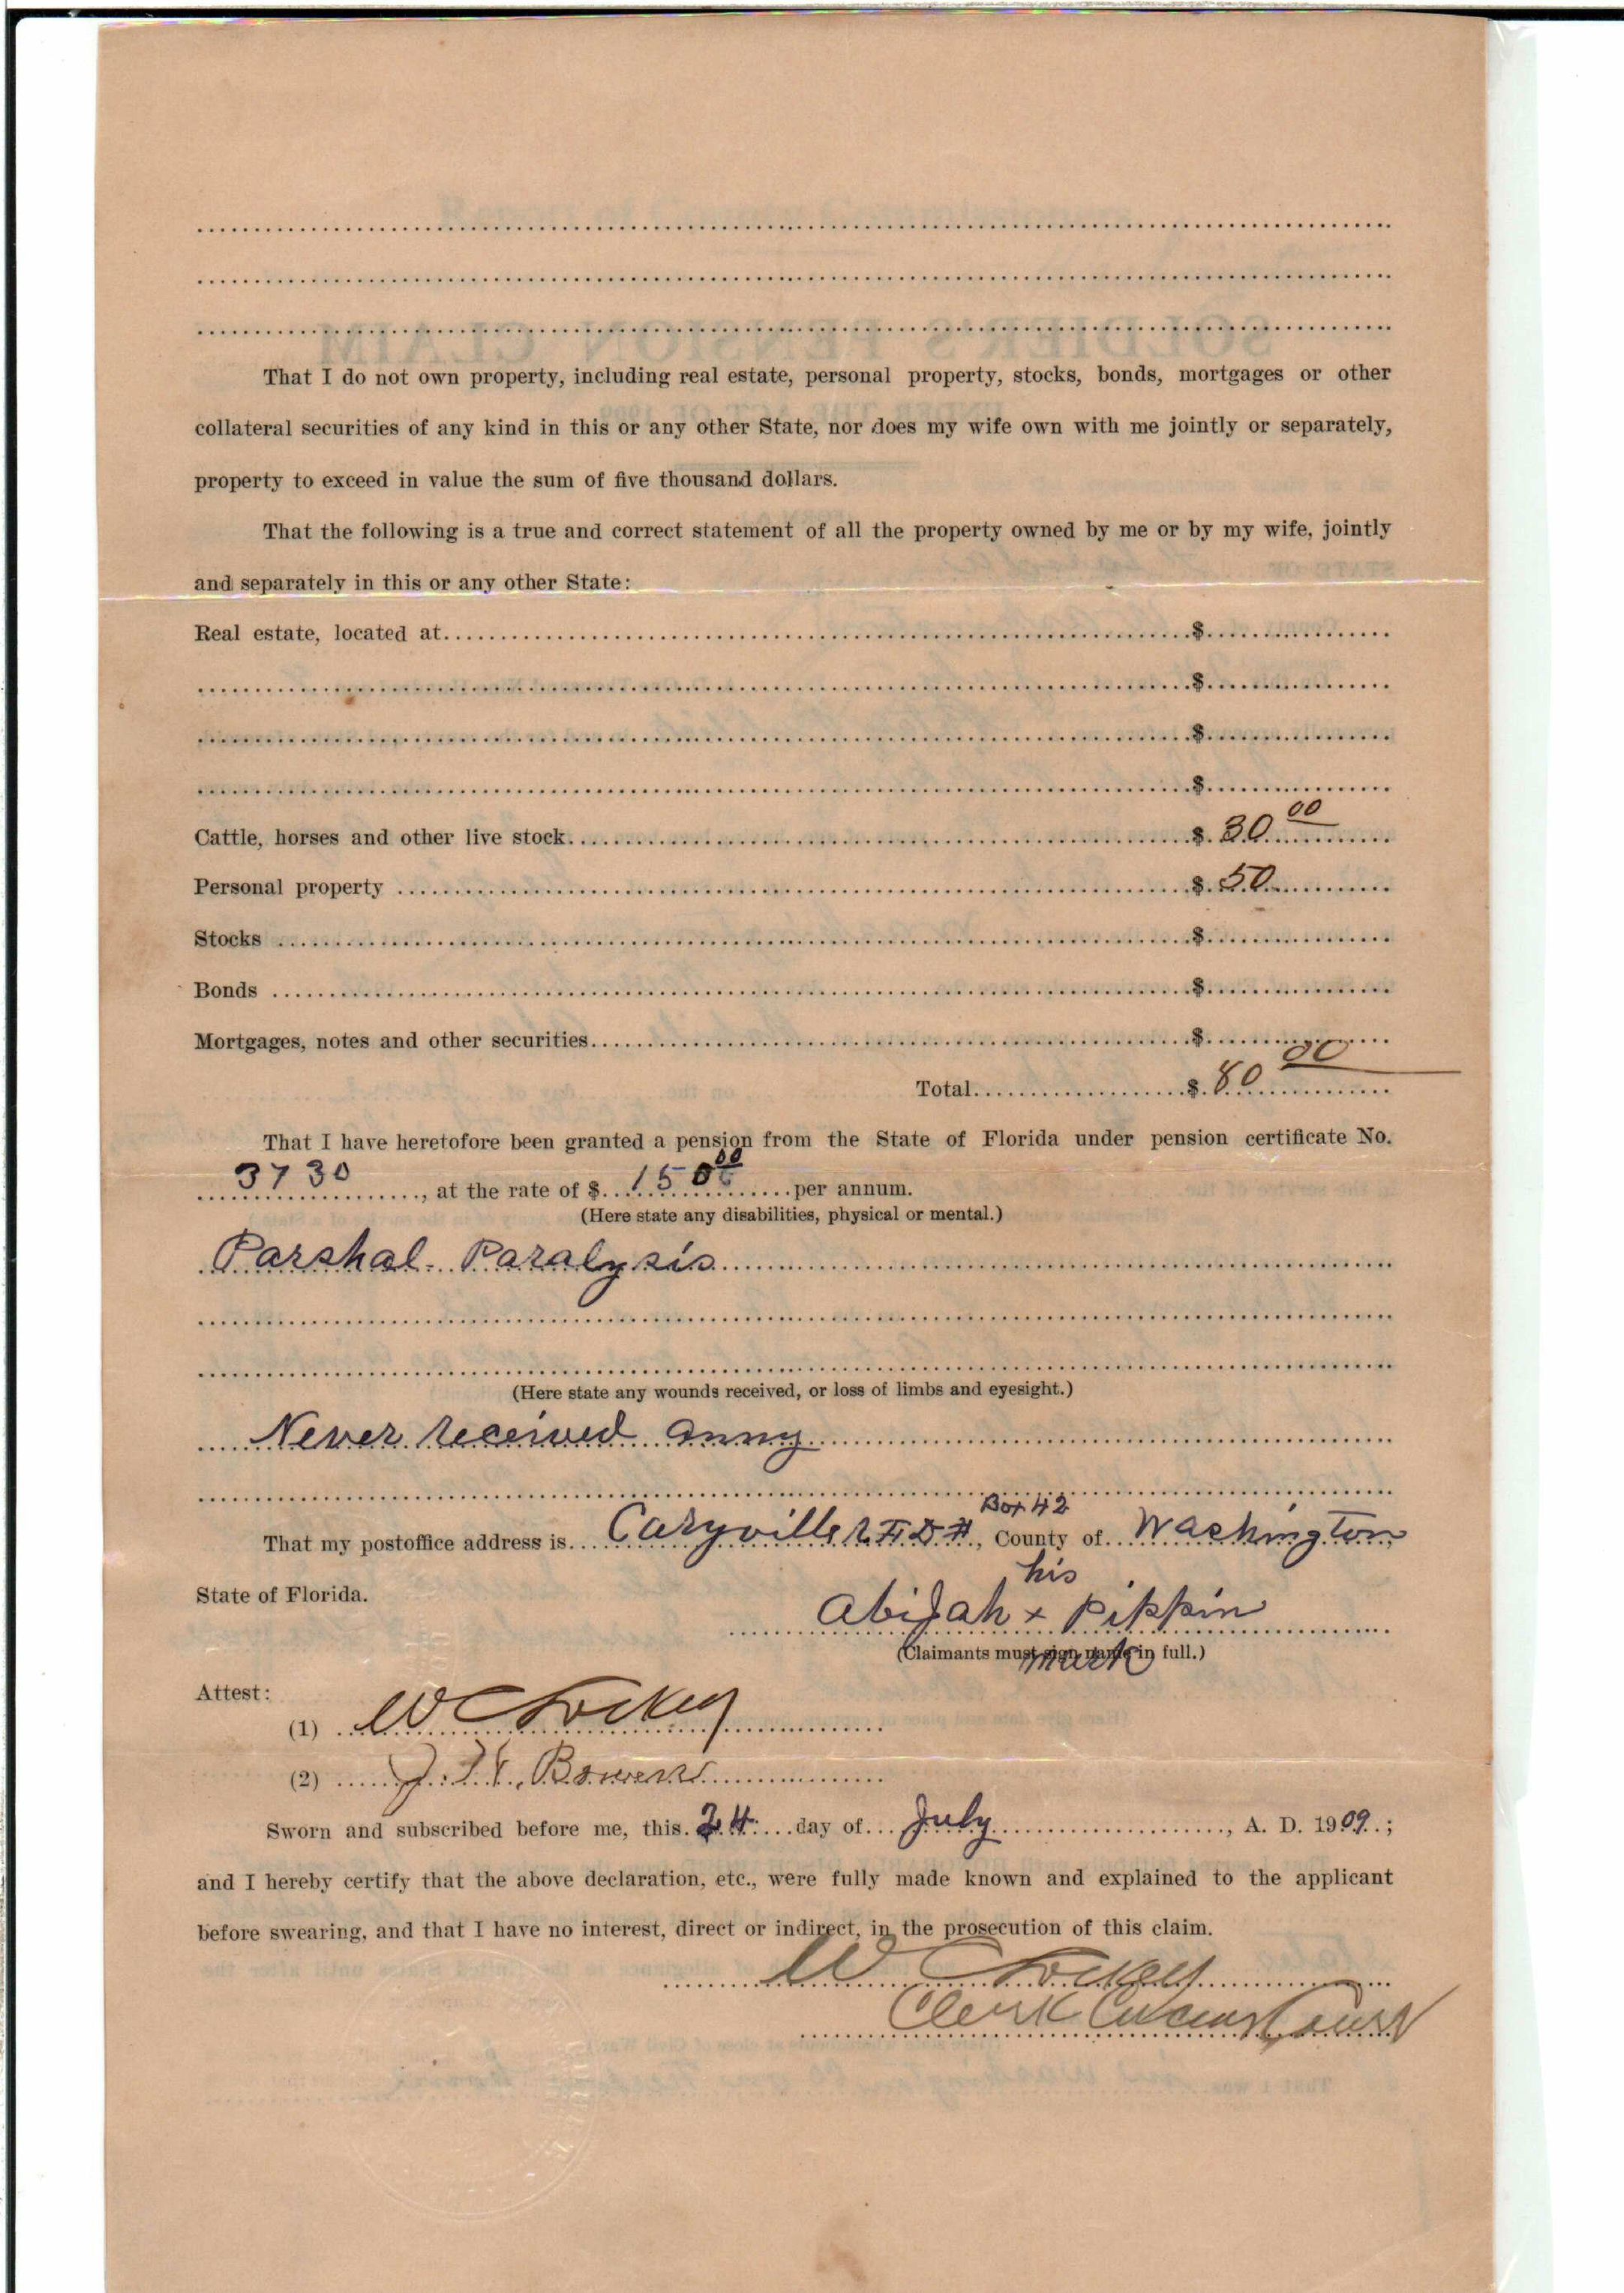 That I do not own property, including real estate, personal property, stocks, bonds, mortgages or other
collateral securities of any kind in this or any other State, nor does my wife own with me jointly or separately,
property to exceed in value the sum of five thousand dollars.
That the following is a true and correct statement of all the property owned by me or by my wife, jointly
and separately in this or any other State:
Real estate, located at $
$
$
$
Cattle, horses and other live stock $ 30 00
Personal property $ 50
Stocks $
Bonds $
Mortgages, notes and other securities $
Total $ 80 00
That I have heretofore been granted a pension from the State of Florida under pension certificate No.
3730, at the rate of $ 150 00 per annum.
(Here state any disabilities, physical or mental.)
Parshal Paralysis
(Here state any wounds received, or loss of limbs and eyesight.)
Never received anny
Box 42
That my postoffice address is Caryville R F D #, County of Washington
State of Florida.
his
Abijah x Pippin
(Claimants must sign name in full.)
mark
Attest:
(1) W C Lockey
(2) Bowers
Sworn and subscribed before me, this 24 day of July, A. D. 1909;
and I hereby certify that the above declaration, etc., were fully made known and explained to the applicant
before swearing, and that I have no interest, direct or indirect, in the prosecution of this claim.
W C Lockey
Clerk Circuit Court